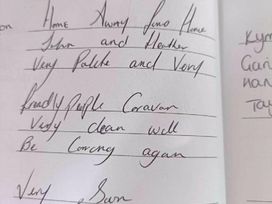 Home Away From Home
John and Heather
Very Polite and Very
Friendly People Caravan
Very clean well
Be Coming again
Very Soon
Kym
Gar
Tay